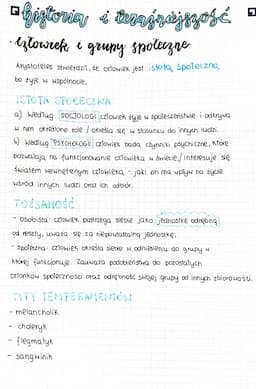 historia i teraźniejszość
• człowiek i grupy społeczne
Arystoteles stwierdził, że człowiek jest istotą społeczną,
bo żyje w wspólnocie.
ISTOTA SPOŁECZNA
a) Według SOCJOLOGI człowiek żyje w społeczeństwie i odgrywa
w nim określone role / określa się w stosunku do innych ludzi.
b) Według PSYCHOLOGII człowiek bada czynniki psychiczne, które
pozwalają na funkcjonowanie człowieka w świecie / interesuje się
światem wewnętrznym człowieka, - jaki on ma wpływ na życie
wśród innych ludzi oraz ich odbiór.
TOŻSAMOŚĆ
- osobista: człowiek postrzega siebie jako jednostkę odrębną
od reszty, uważa się za niepowtarzalną jednostkę.
- społeczna: człowiek określa siebie w odniesieniu do grupy w
której funkcjonuje. Zauważa podobieństwa do pozostałych
członków społeczności oraz odrębność swojej grupy od innych zbiorowości.
TYPY TEMPERAMENTÓW
- melancholik
- choleryk
- flegmatyk
- sangwinik